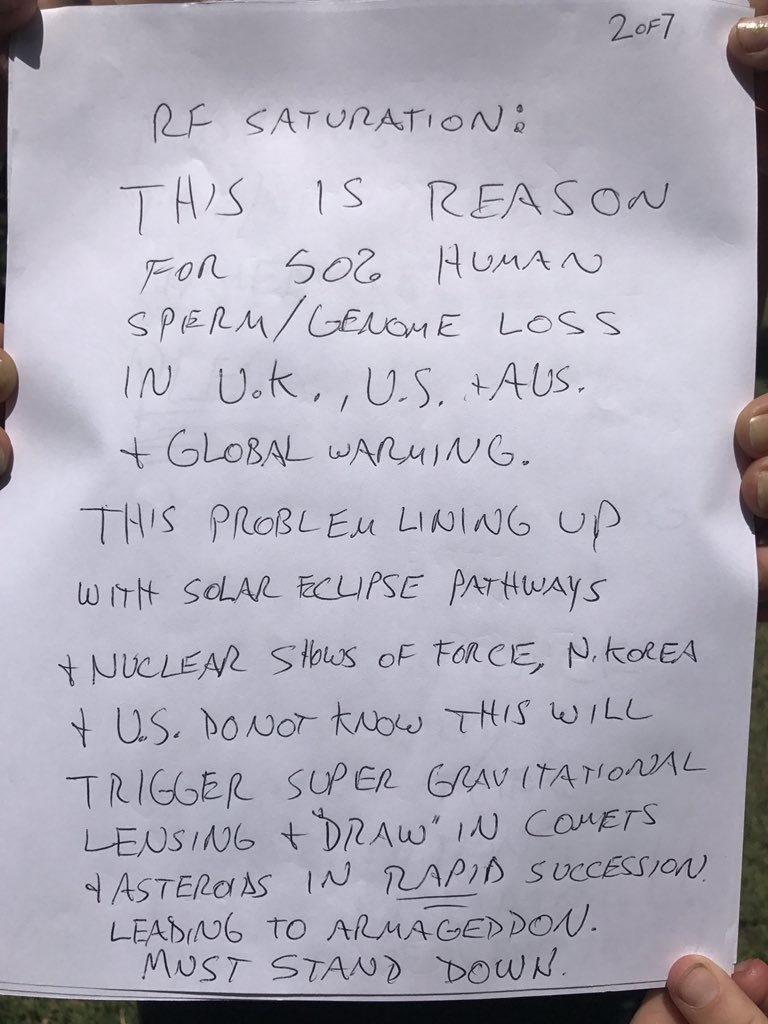 2 OF 7
RF SATURATION:
THIS IS REASON
FOR 50% HUMAN
SPERM/GENOME LOSS
IN U.K., U.S. + AUS.
+ GLOBAL WARMING.
THIS PROBLEM LINING UP
WITH SOLAR ECLIPSE PATHWAYS
+ NUCLEAR SHOWS OF FORCE, N. KOREA
+ U.S. DO NOT KNOW THIS WILL
TRIGGER SUPER GRAVITATIONAL
LENSING + "DRAW" IN COMETS
+ ASTEROIDS IN RAPID SUCCESSION.
LEADING TO ARMAGEDDON.
MUST STAND DOWN.